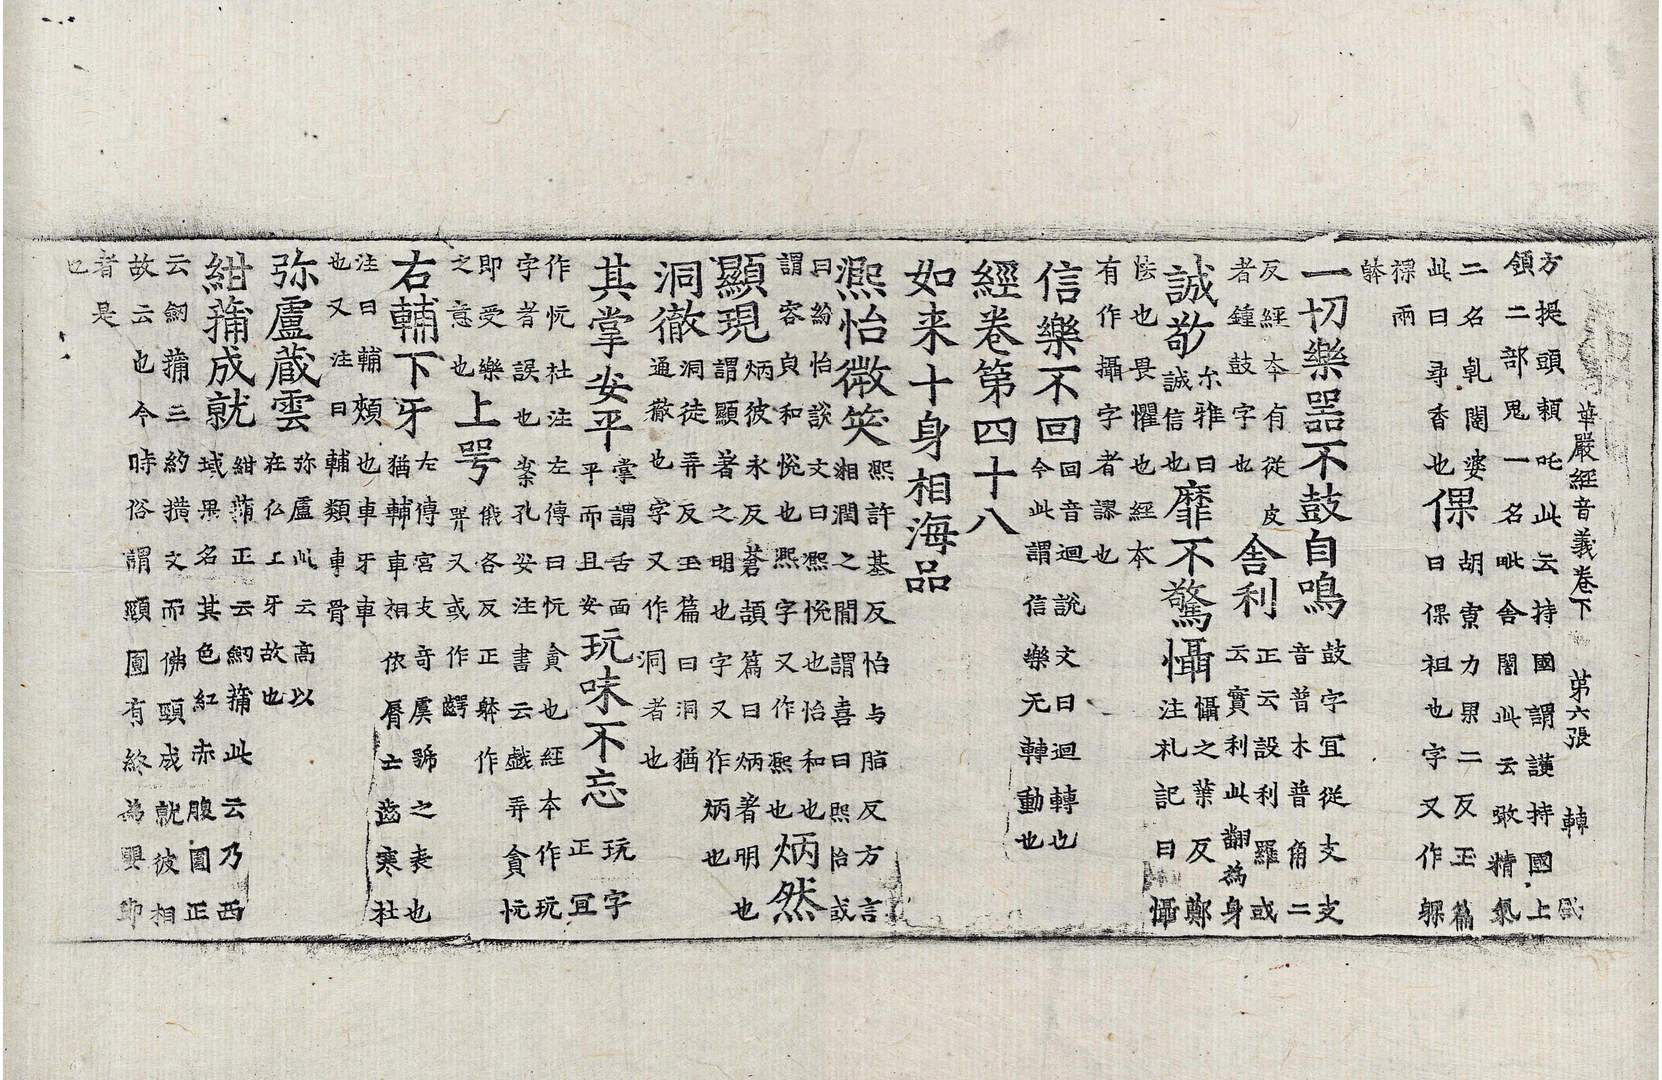 華嚴經音義卷下 第六張 轉
方提頭頼吒此云持國謂護持國上
領二部鬼一名毗舍闍此云噉精氣
二名乹闥婆 胡寮力果二反玉篇
此曰尋香也倮曰倮祖也字又作躶
裸兩
躰
一切樂器不鼓自鳴 鼓字冝從支支
音普木普角二
反經本有從皮 正云設利羅或
者鍾鼓字也 舍利 云實利此翻為身
誠敬 尒雅曰 靡不驚懾 懾之葉反鄭
誠信也 注礼記曰懾
恡也畏懼也經本
有作攝字者謬也
信樂不回 回音迴說文曰迴轉也
今此謂信樂无轉動也
經卷第四十八
如来十身相海品
熈怡微笑 熈許基反怡与脂反方言
湘潤之間謂喜曰熈怡或
曰紛怡談文曰熈悅也怡和也
謂容皃和悅也熈字又作熈也 炳然
顯現 炳彼永反蒼頡篇曰炳著明也
謂顯著之明也字又作炳也
洞徹 洞徒弄反玉篇曰洞猶
通徹也字又作洞者也
其掌安平 掌謂舌面 玩味不忘 玩字
平而且安 正冝
作忨杜注左傳曰忨貪也經本作玩
字者誤也案孔安注書云戲弄貪忨
即受樂 㗁俄各反正躰作
之意也 上㗁 㗁又或作齶
右輔下牙 左傳宮之奇虞虢之表也
猶輔車相依脣亡齒寒杜
注曰輔頰也車牙車
也又注曰輔類車骨
弥盧蔵雲 弥盧此云高以
在仏上牙故也
紺蒱成就 紺蒱正云紺蒱此云乃西
域果名其色紅赤腹圓正
云紉蒱三約撗文而佛頸成就彼相
故云也今時俗謂頸圓有終為嬰即
者是
也